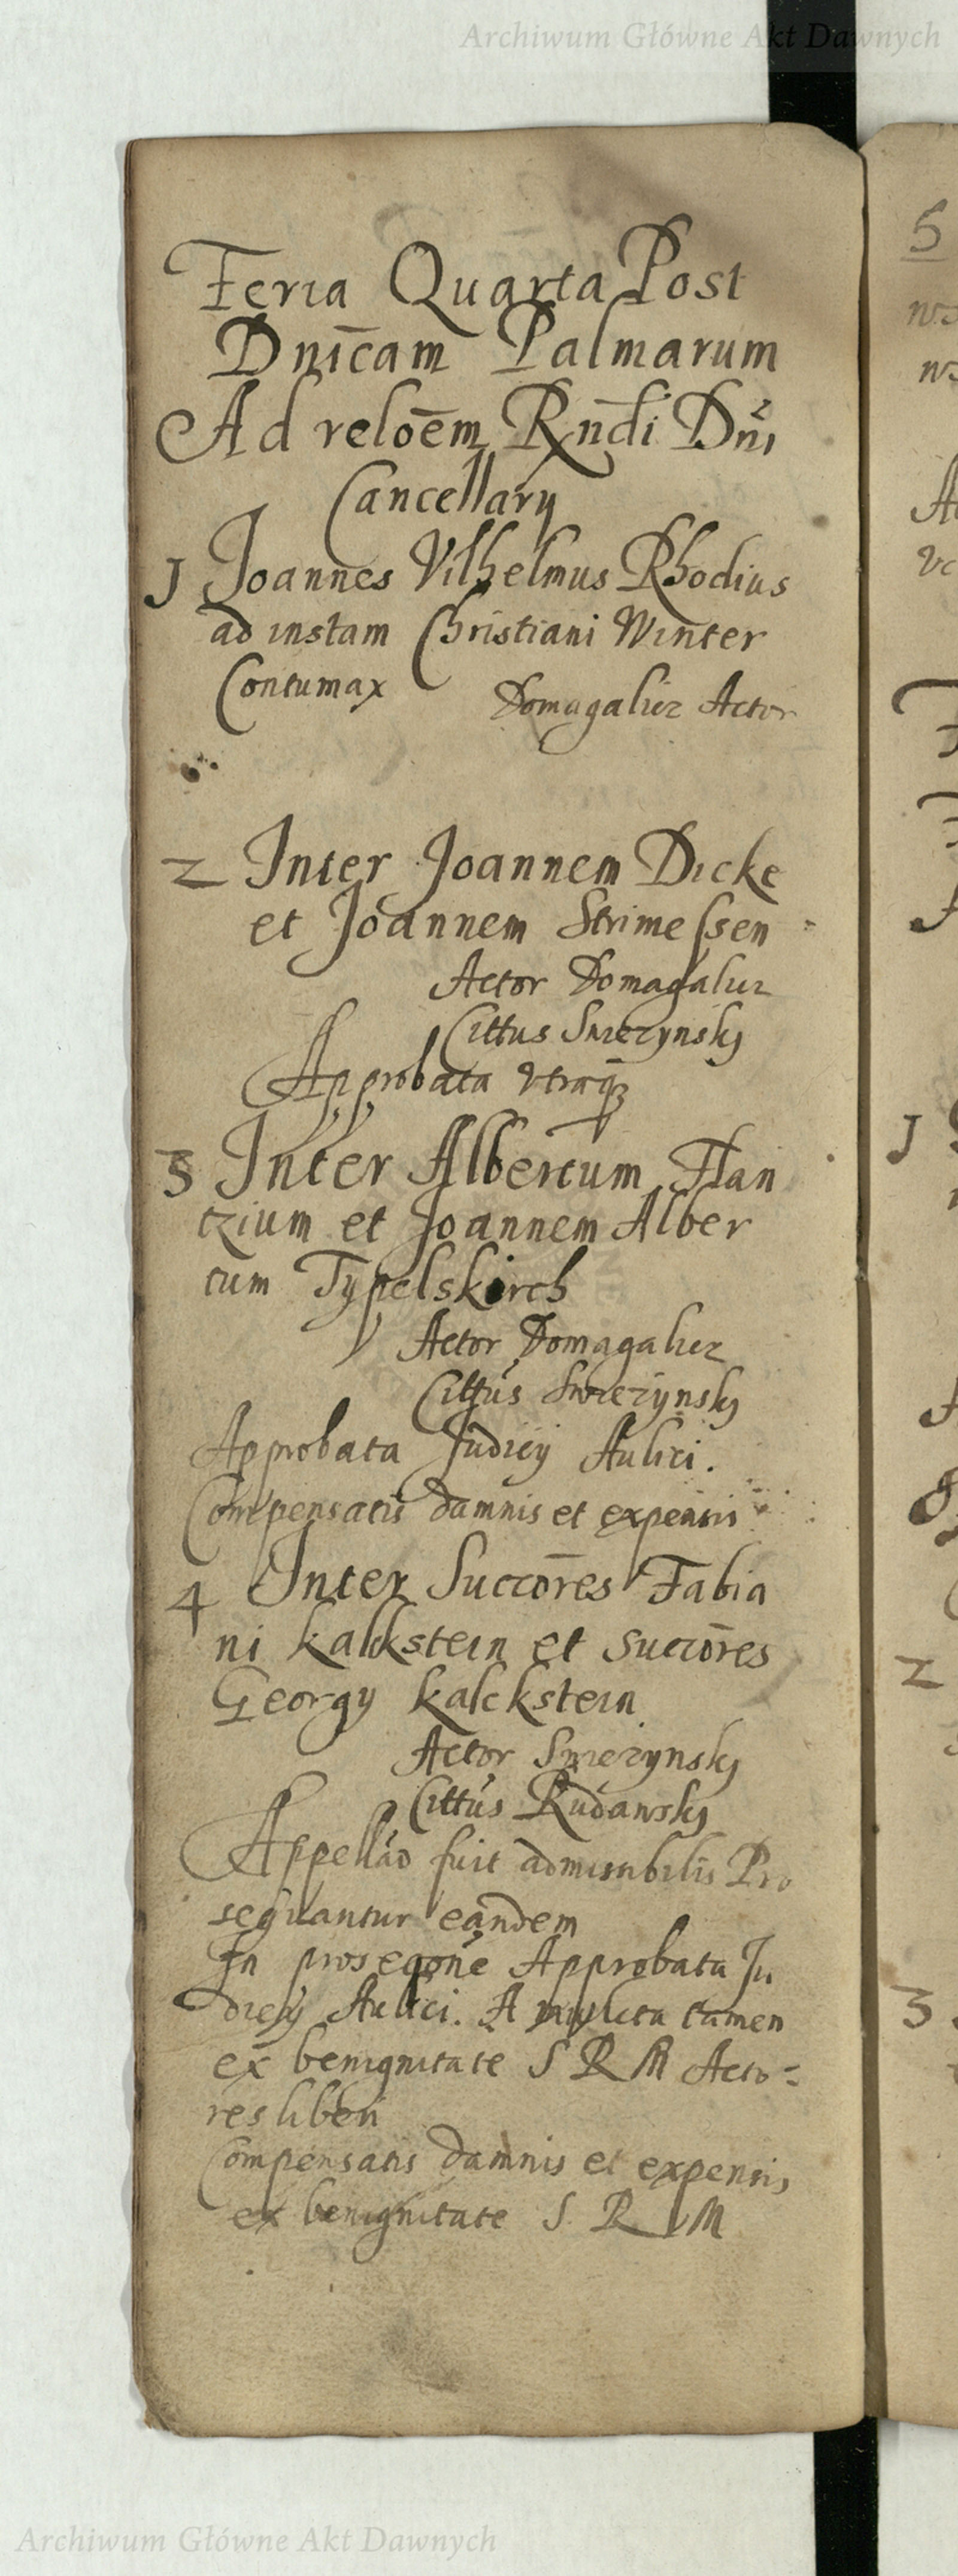 Archiwum Główne Akt Dawnych
Feria Quarta Post
Dnīcam Palmarum
Ad reloēm Rndi Dni
Cancellary
1 Joannes Vilhelmus Rhodius
ad instam Christiani Winter
Contumax Domagalicz Actor
2 Inter Joannem Dicke
et Joannem Strimessen
Actor Domagalicz
Cittus Swiezynsky
Approbata vtraq
3 Inter Albertum Flan
tzium et Joannem Alber
tum Typelskirch
Actor Domagalicz
Cittus Swiezynsky
Approbata Judicy Aulici.
Compensatis damnis et expensis
4 Inter Succōres Fabia
ni Kalckstein et succōres
Georgy Kalckstein
Actor Swiezynsky
Cittus Rudawsky
Appellāo fuit admissibilis Pro
sequantur eandem
In proseqōne Approbata Ju
dicy Aulici. A mulcta tamen
ex benignitate S R M Acto=
res liberi
Compensatis damnis et expensis
ex benignitate S R M
5
3
Archiwum Główne Akt Dawnych